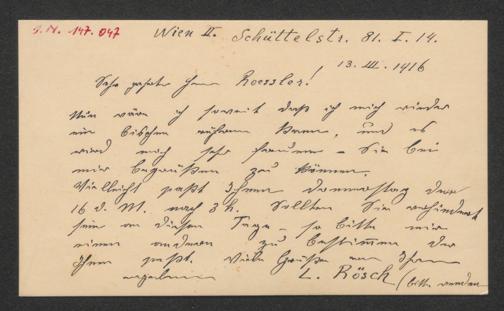 J.N. 147.047
Wien II. Schüttelstr. 81. I. 14.
13. III. 1916
Sehr geehrter Herr Roessler!
Nun wäre ich soweit daß ich mich wieder
ein bißchen rühren kann, und es
wird mich sehr freuen – Sie bei
mir begrüßen zu können.
Vielleicht paßt Ihnen donnerstag den
16 d. M. nach 8 h. Sollten Sie verhindert
sein an diesem Tage – so bitte mir
einen anderen zu bestimmen der
Ihnen paßt. Viele Grüße von Ihrem
L. Rösch (bitte wenden